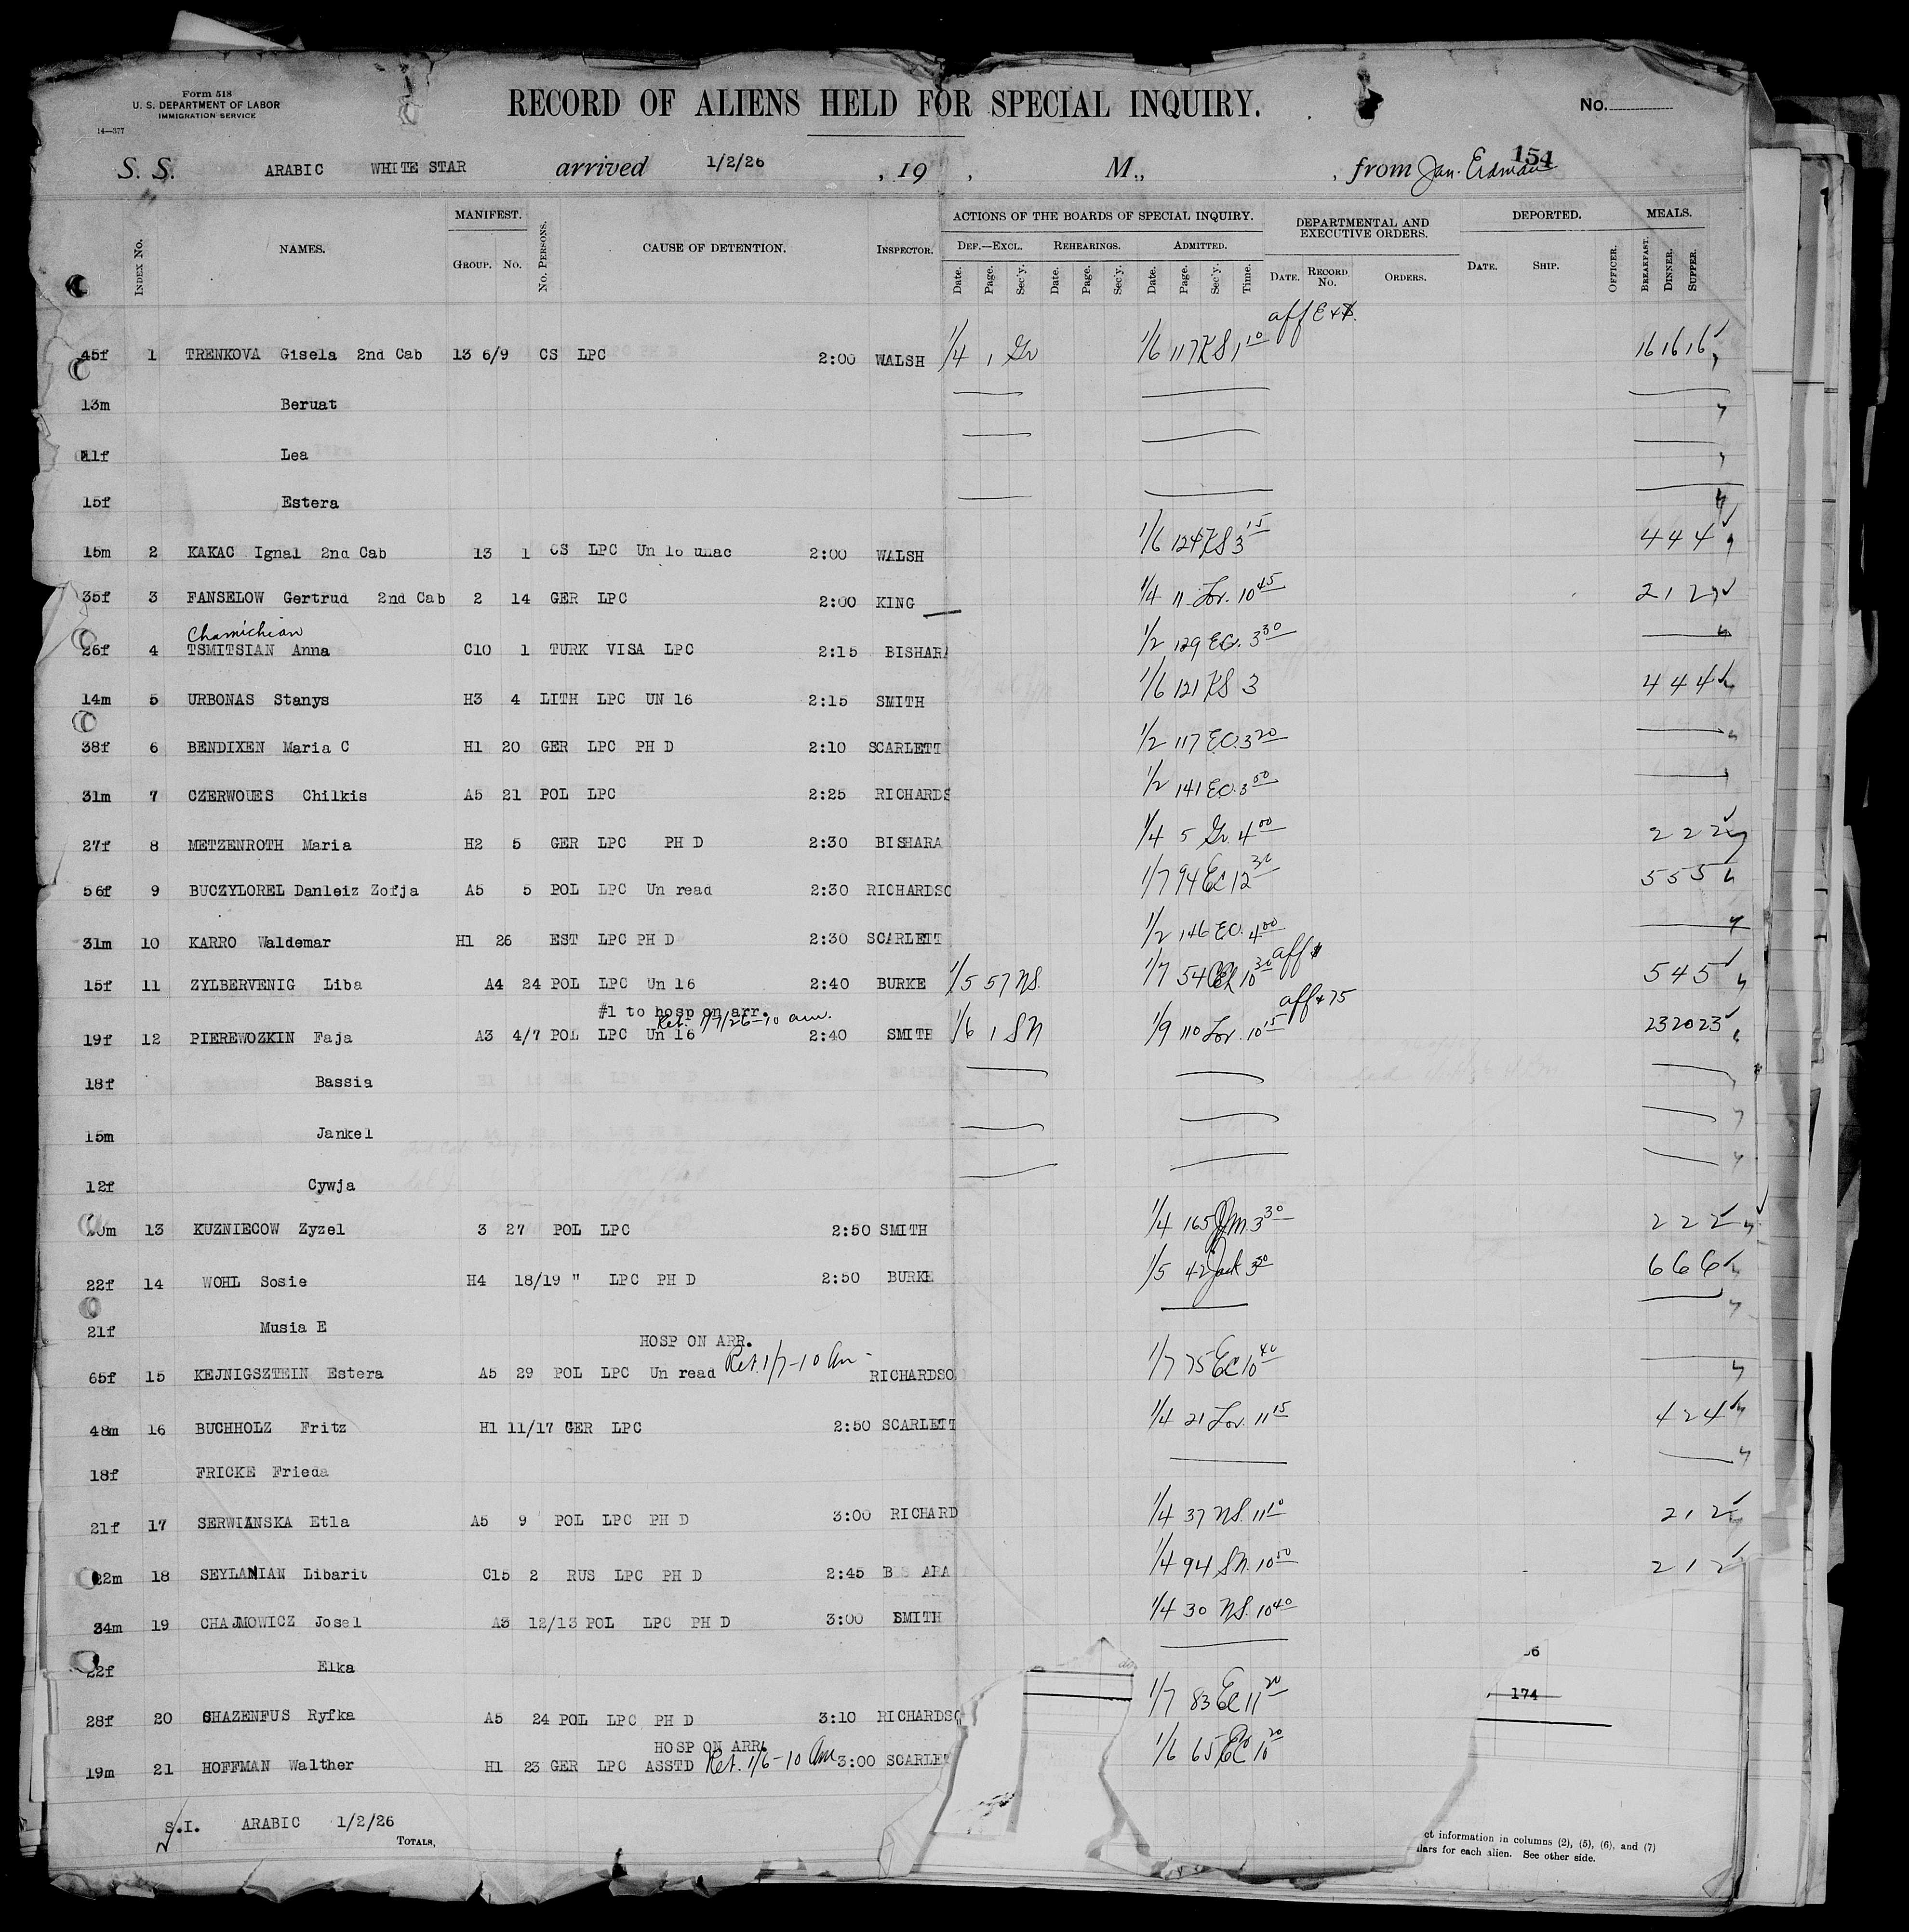 Form 518
U. S. DEPARTMENT OF LABOR
IMMIGRATION SERVICE
14—377
RECORD OF ALIENS HELD FOR SPECIAL INQUIRY.
No.
154
S. S. ARABIC WHITE STAR arrived 1/2/26 , 19 , M., , from Jan. Erdman
Index No. NAMES. MANIFEST. Group. No. No. Persons. CAUSE OF DETENTION. Inspector. ACTIONS OF THE BOARDS OF SPECIAL INQUIRY. Def.—Excl. Date. Page. Sec'y. Rehearings. Date. Page. Sec'y. Admitted. Date. Page. Sec'y. Time. DEPARTMENTAL AND EXECUTIVE ORDERS. Date. Record No. Orders. DEPORTED. Date. Ship. Officer. MEALS. Breakfast. Dinner. Supper.
45f 1 TRENKOVA Gisela 2nd Cab 13 6/9 CS LPC 2:00 WALSH 1/4 1 Gr 1/6 117 KS 1 10 aff 16 16 16
13m Beruat
11f Lea
15f Estera
15m 2 KAKAC Ignal 2nd Cab 13 1 CS LPC Un 16 unac 2:00 WALSH 1/6 124 KS 3 15 4 4 4
35f 3 FANSELOW Gertrud 2nd Cab 2 14 GER LPC 2:00 KING 1/4 11 Lor. 10 45 2 1 2
Chamichian
26f 4 TSMITSIAN Anna C10 1 TURK VISA LPC 2:15 BISHARA 1/2 129 EC. 3 30
14m 5 URBONAS Stanys H3 4 LITH LPC UN 16 2:15 SMITH 1/6 121 KS 3 4 4 4
38f 6 BENDIXEN Maria C H1 20 GER LPC PH D 2:10 SCARLETT 1/2 117 EC. 3 20
31m 7 CZERWOUES Chilkis A5 21 POL LPC 2:25 RICHARDS 1/2 141 EC. 3 50
27f 8 METZENROTH Maria H2 5 GER LPC PH D 2:30 BISHARA 1/4 5 Gr. 4 00 2 2 2
56f 9 BUCZYLOREL Danleiz Zofja A5 5 POL LPC Un read 2:30 RICHARDSO 1/7 94 EC 12 30 5 5 5
31m 10 KARRO Waldemar H1 26 EST LPC PH D 2:30 SCARLETT 1/2 146 EC. 4 00
15f 11 ZYLBERVENIG Liba A4 24 POL LPC Un 16 2:40 BURKE 1/5 57 NS. 1/7 54 10 30 aff 5 4 5
#1 to hosp on arr.
Ret. 1/7/26—10 am.
19f 12 PIEREWOZKIN Faja A3 4/7 POL LPC Un 16 2:40 SMITH 1/6 1 SN 1/9 110 Lor. 10 15 aff + 75 23 20 23
18f Bassia
15m Jankel
12f Cywja
0m 13 KUZNIECOW Zyzel 3 27 POL LPC 2:50 SMITH 1/4 165 3 30 2 2 2
22f 14 WOHL Sosie H4 18/19 " LPC PH D 2:50 BURKE 1/5 42 Jack 3 30 6 6 6
21f Musia E
HOSP ON ARR.
65f 15 KEJNIGSZTEIN Estera A5 29 POL LPC Un read Ret. 1/7—10 Am RICHARDSO 1/7 75 EC 10 40
48m 16 BUCHHOLZ Fritz H1 11/17 GER LPC 2:50 SCARLETT 1/4 21 Lor. 11 15 4 2 4
18f FRICKE Frieda
21f 17 SERWIANSKA Etla A5 9 POL LPC PH D 3:00 RICHARD 1/4 37 NS. 11 10 2 1 2
22m 18 SEYLANIAN Libarit C15 2 RUS LPC PH D 2:45 B S ARA 1/4 94 SN. 10 50 2 1 2
34m 19 CHAJMOWICZ Josel A3 12/13 POL LPC PH D 3:00 SMITH 1/4 30 NS. 10 40
22f Elka
28f 20 SHAZENFUS Ryfka A5 24 POL LPC PH D 3:10 RICHARDSO 1/7 83 EC 11 20
174
HOSP ON ARR.
19m 21 HOFFMAN Walther H1 23 GER LPC ASSTD Ret. 1/6—10 Am 3:00 SCARLET 1/6 65 EC 10 20
S.I. ARABIC 1/2/26
Totals,
ct information in columns (2), (5), (6), and (7)
llars for each alien. See other side.